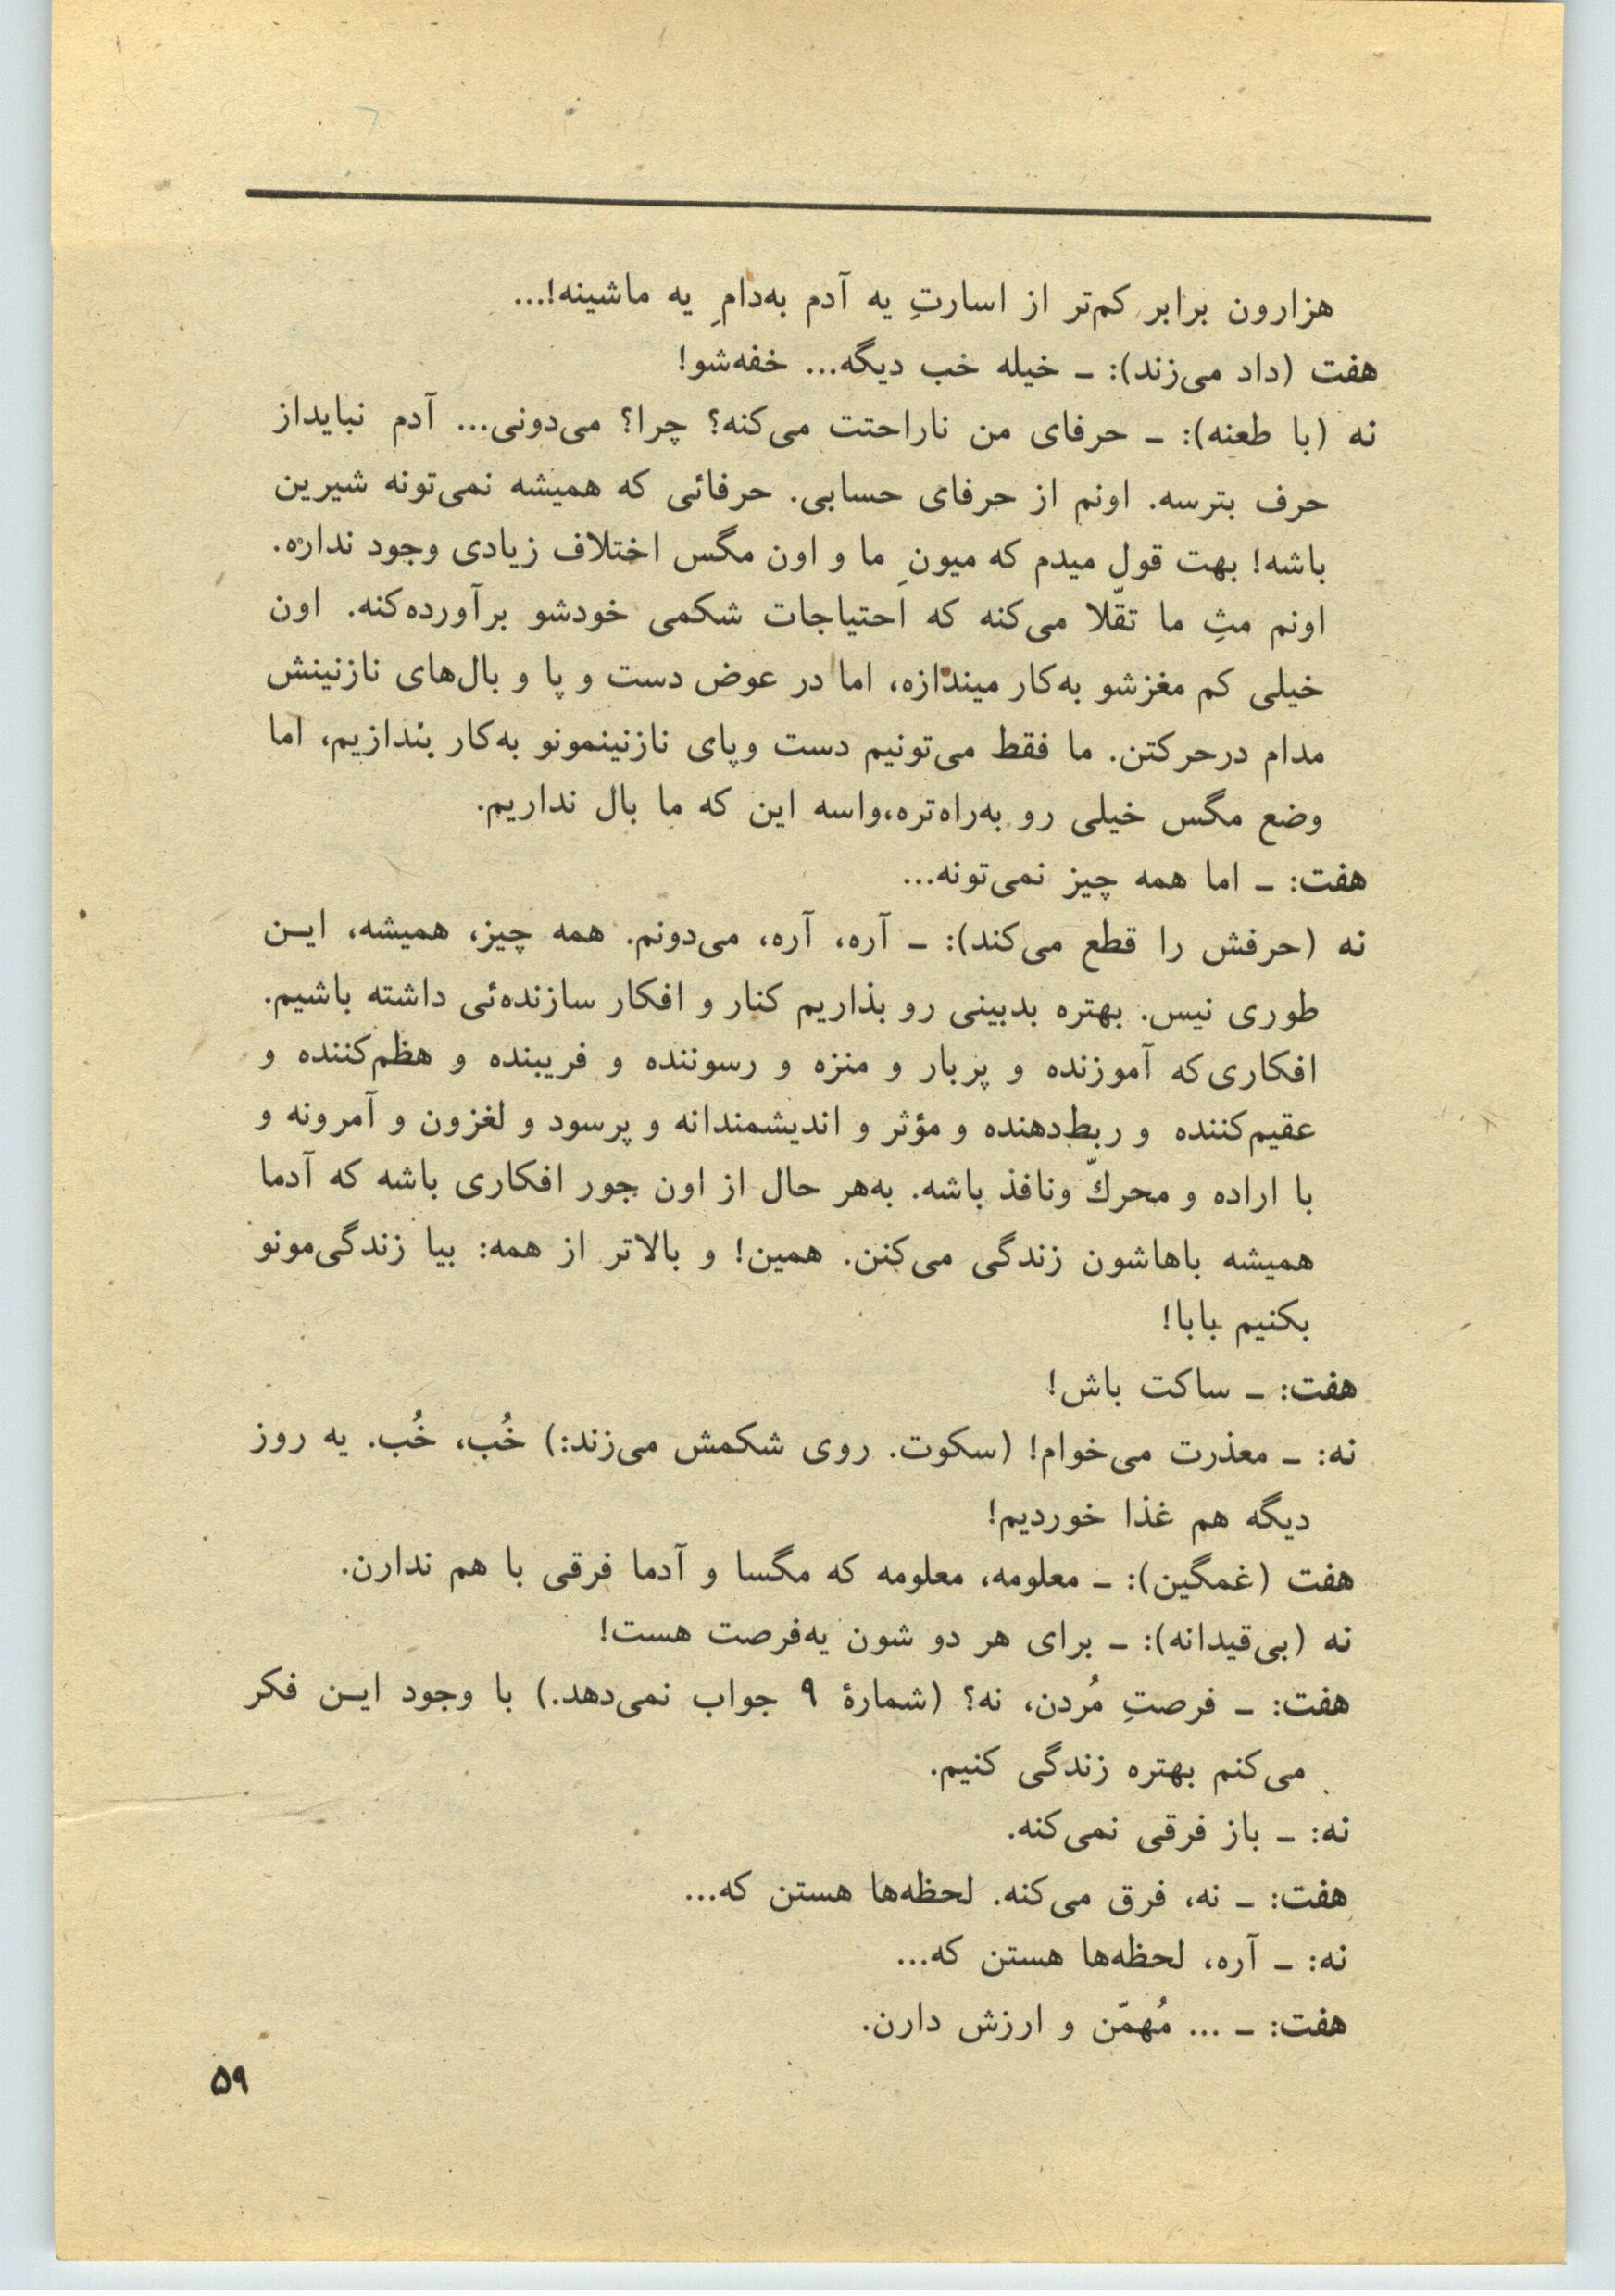 هزارون برابر کم‌تر از اسارتِ یه آدم به‌دامِ یه ماشینه!...
هفت (داد می‌زند): ـ خیله خب دیگه... خفه‌شو!
نه (با طعنه): ـ حرفای من ناراحتت می‌کنه؟ چرا؟ می‌دونی... آدم نبایداز
حرف بترسه. اونم از حرفای حسابی. حرفائی که همیشه نمی‌تونه شیرین
باشه! بهت قول میدم که میونِ ما و اون مگس اختلاف زیادی وجود نداره.
اونم مثِ ما تقّلا می‌کنه که احتیاجات شکمی خودشو برآورده‌کنه. اون
خیلی کم مغزشو به‌کار میندازه، اما در عوض دست و پا و بال‌های نازنینش
مدام درحرکتن. ما فقط می‌تونیم دست وپای نازنینمونو به‌کار بندازیم، اما
وضع مگس خیلی رو به‌راه‌تره،واسه این که ما بال نداریم.
هفت: ـ اما همه چیز نمی‌تونه...
نه (حرفش را قطع می‌کند): ـ آره، آره، می‌دونم. همه چیز، همیشه، ایـن
طوری نیس. بهتره بدبینی رو بذاریم کنار و افکار سازنده‌ئی داشته باشیم.
افکاری‌که آموزنده و پربار و منزه و رسوننده و فریبنده و هظم‌کننده و
عقیم‌کننده و ربط‌دهنده و مؤثر و اندیشمندانه و پرسود و لغزون و آمرونه و
با اراده و محركّ ونافذ باشه. به‌هر حال از اون جور افکاری باشه که آدما
همیشه باهاشون زندگی می‌کنن. همین! و بالاتر از همه: بیا زندگی‌مونو
بکنیم بابا!
هفت: ـ ساکت باش!
نه: ـ معذرت می‌خوام! (سکوت. روی شکمش می‌زند:) خُب، خُب. یه روز
دیگه هم غذا خوردیم!
هفت (غمگین): ـ معلومه، معلومه که مگسا و آدما فرقی با هم ندارن.
نه (بی‌قیدانه): ـ برای هر دو شون یه‌فرصت هست!
هفت: ـ فرصتِ مُردن، نه؟ (شمارهٔ ۹ جواب نمی‌دهد.) با وجود ایـن فکر
می‌کنم بهتره زندگی کنیم.
نه: ـ باز فرقی نمی‌کنه.
هفت: ـ نه، فرق می‌کنه. لحظه‌ها هستن که...
نه: ـ آره، لحظه‌ها هستن که...
هفت: ـ ... مُهمّن و ارزش دارن.
۵۹